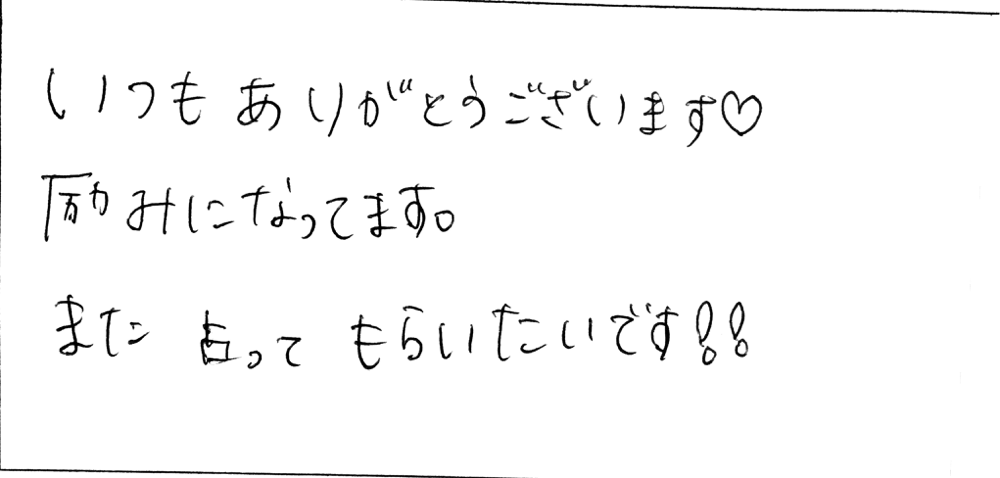 いつもありがとうございます♡
励みになってます。
また占ってもらいたいです!!